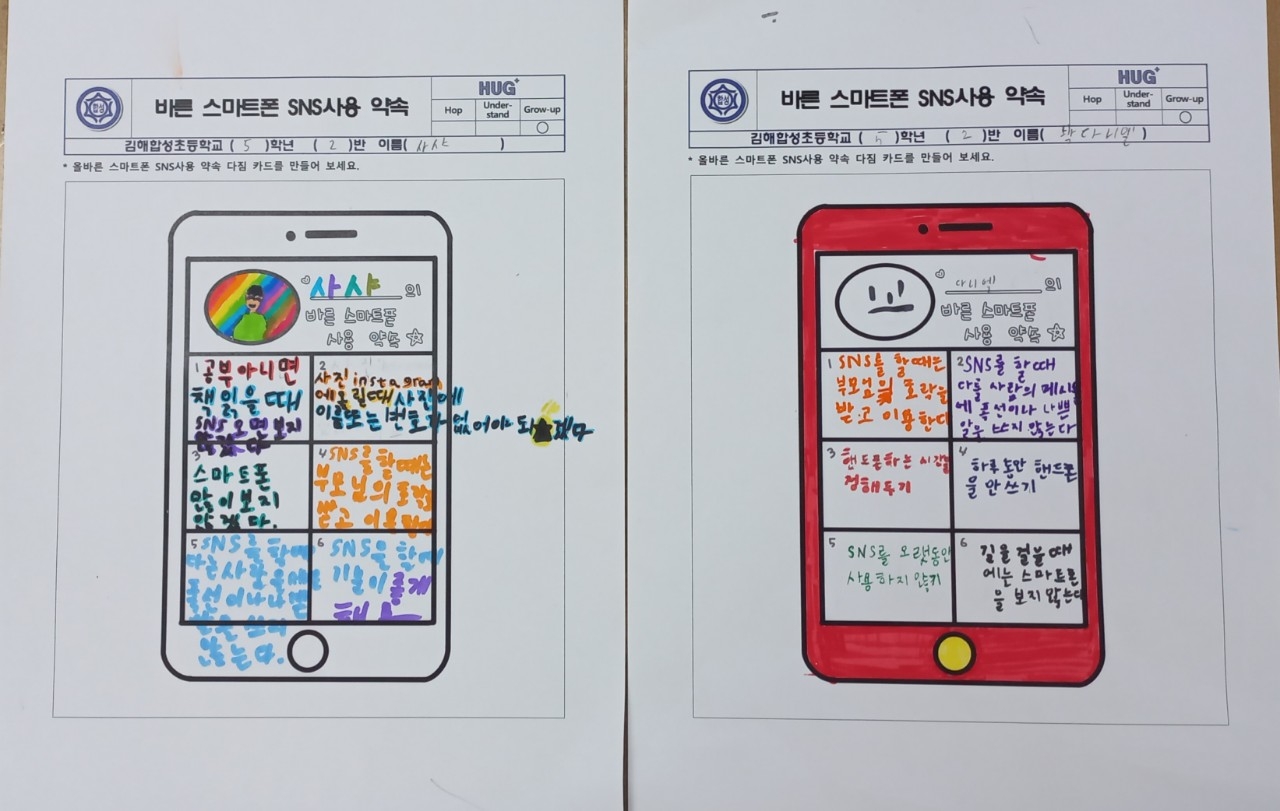 합성
바른 스마트폰 SNS사용 약속
HUG+
Hop
Under-
stand
Grow-up
○
김해합성초등학교 ( 5 )학년 ( 2 )반 이름( 사샤 )
* 올바른 스마트폰 SNS사용 약속 다짐 카드를 만들어 보세요.
사샤 의
바른 스마트폰
사용 약속
1 공부 아니면
책 읽을 때
SNS 오면 보지
않겠다
2
사진 instagram
에 올릴 때 사진에
이름 또는 번호가 없어야 되겠다
3
스마트폰
많이 보지
않겠다.
4 SNS를 할 때는
부모님의 허락을
받고 이용한다
5 SNS를 할 때
다른 사람
풍선이나 나쁜
않는다.
6 SNS를 할 때
기분이
합성
바른 스마트폰 SNS사용 약속
HUG+
Hop
Under-
stand
Grow-up
○
김해합성초등학교 ( 5 )학년 ( 2 )반 이름( 다니엘 )
* 올바른 스마트폰 SNS사용 약속 다짐 카드를 만들어 보세요.
다니엘 의
바른 스마트폰
사용 약속
1 SNS를 할 때는
부모님의 호락을
받고 이용한다
2 SNS를 할 때
다른 사람의
에 폭선이나 나쁜
말을 쓰지 않는다
3 핸드폰하는 시간을
정해두기
4 하루 동안 핸드폰
을 안 쓰기
5 SNS를 오랫동안
사용하지 않기
6 길을 걸을 때
에는 스마트폰
을 보지 않는다